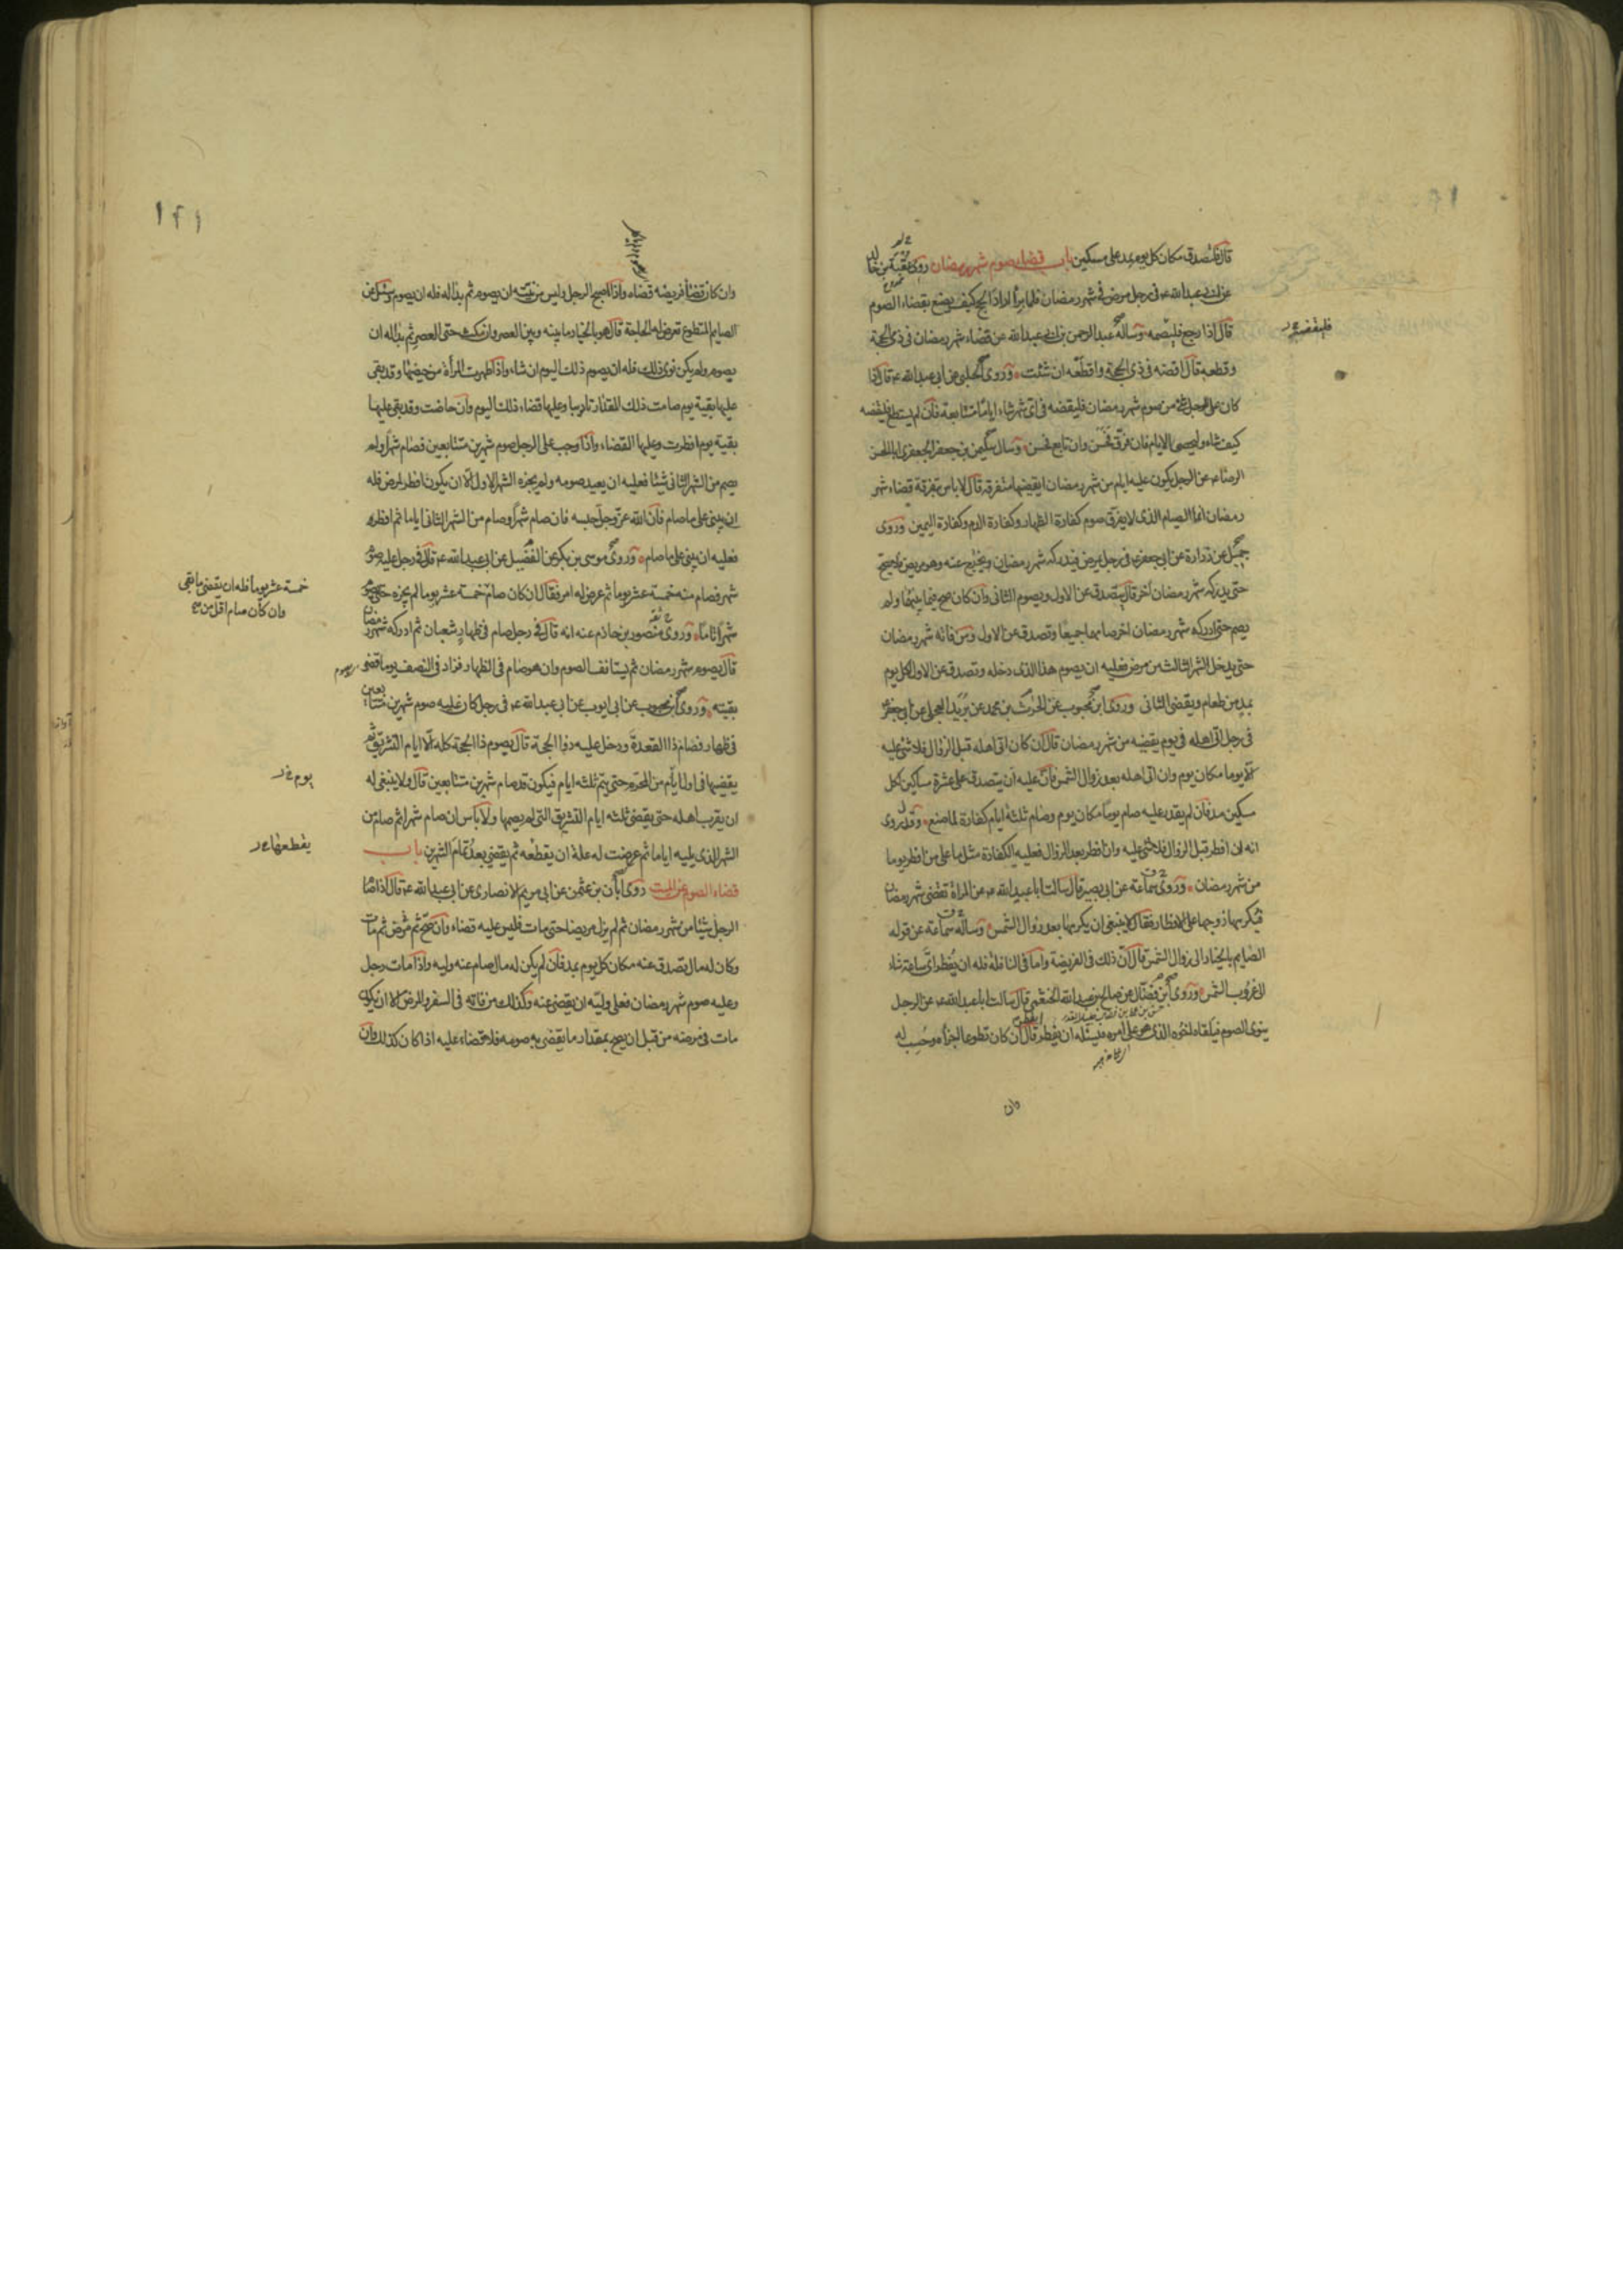 قال فليتصدق مكان كل يوم بمد على مسكين باب قضاء صوم شهر رمضان روى عقبة بن خالد
عن ابى عبدالله ع فى رجل مرض فى شهر رمضان فلما برأ اراد الحج كيف يصنع بقضاء الصوم
قال اذا رجع فليصمه وساله عبد الرحمن بن ابى عبدالله عن قضاء شهر رمضان فى ذى الحجة
وقطعه قال اقضه فى ذى الحجة واقطعه ان شئت وروى الحلبى عن ابى عبدالله ع قال اذا
كان على الرجل شئ من صوم شهر رمضان فليقضه فى اى شهر شاء اياما متتابعة فان لم يستطع فليقضه
كيف شاء وليحصى الايام فان فرق فحسن وان تابع فحسن وسال سليمن بن جعفر الجعفرى ابا الحسن
الرضا ع عن الرجل يكون عليه ايام من شهر رمضان ايقضيها متفرقة قال لا باس بتفرقة قضاء شهر
رمضان انما الصيام الذى لا يفرق صوم كفارة الظهار وكفارة الدم وكفارة اليمين وروى
جميل عن زرارة عن ابى جعفر ع فى رجل يمرض فيدركه شهر رمضان ويخرج عنه وهو مريض فلا يصح
حتى يدركه شهر رمضان اخر قال يتصدق عن الاول ويصوم الثانى وان كان صح فيما بينهما ولم
يصم حتى ادركه شهر رمضان اخر صامهما جميعا وتصدق عن الاول ومن فاته شهر رمضان
حتى يدخل الشهر الثالث من مرض فعليه ان يصوم هذا الذى دخله وتصدق عن الاول لكل يوم
بمد من طعام ويقضى الثانى وروى ابن محبوب عن الحرث بن محمد عن بريد العجلى عن ابى جعفر
فى رجل اتى اهله فى يوم يقضيه من شهر رمضان قال ان كان اتى اهله قبل الزوال فلا شئ عليه
الا يوما مكان يوم وان اتى اهله بعد زوال الشمس فان عليه ان يتصدق على عشرة مساكين لكل
مسكين مد فان لم يقدر عليه صام يوما مكان يوم وصام ثلثة ايام كفارة لما صنع وقد روى
انه ان افطر قبل الزوال فلا شئ عليه وان افطر بعد الزوال فعليه الكفارة مثل ما على من افطر يوما
من شهر رمضان وروى سماعة عن ابى بصير قال سالت ابا عبدالله ع عن المراة تقضى شهر رمضان
فيكرهها زوجها على الافطار فقال لا ينبغى ان يكرهها بعد زوال الشمس وساله سماعة عن قوله
الصايم بالخيار الى زوال الشمس قال ان ذلك فى الفريضة واما فى النافلة فله ان يفطر اى ساعة شاء
الى غروب الشمس وروى ابن فضال عن صالح بن عبدالله الخثعمى قال سالت ابا عبدالله ع عن الرجل
ينوى الصوم فيلقاه اخوه الذى هو على امره فيسئله ان يفطر قال ان كان تطوعا اجزاه وحسب له
وان
فليقضه
١٤١
وان كان قضاء فريضة قضاه واذا اصبح الرجل وليس من نيته ان يصوم ثم بدا له فله ان يصوم وسئل عن
الصايم المتطوع تعرض له الحاجة قال هو بالخيار ما بينه وبين العصر وان مكث حتى العصر ثم بدا له ان
يصوم ولم يكن نوى ذلك فله ان يصوم ذلك اليوم ان شاء واذا طهرت المرأة من حيضها وقد بقى
عليها بقية يوم صامت ذلك المقدار تاديبا وعليها قضاء ذلك اليوم وان حاضت وقد بقى عليها
بقية يوم افطرت وعليها القضاء واذا وجب على الرجل صوم شهرين متتابعين فصام شهرا ولم
يصم من الشهر الثانى شيئا فعليه ان يعيد صومه ولم يجزه الشهر الاول الا ان يكون افطر لمرض فله
ان يبنى على ما صام فان الله عز وجل حبسه فان صام شهرا وصام من الشهر الثانى اياما ثم افطر
فعليه ان يبنى على ما صام وروى موسى بن بكر عن الفضيل عن ابى عبدالله ع قال فى رجل عليه صوم
شهر فصام منه خمسة عشر يوما ثم عرض له امر فقال ان كان صام خمسة عشر يوما لم يجزه حتى يصوم
شهرا تاما وروى منصور بن حازم عنه انه قال فى رجل صام فى ظهار شعبان ثم ادركه شهر رمضان
قال يصوم شهر رمضان ثم يستانف الصوم وان هو صام فى الظهار فزاد فى النصف يوما قضى
بقيته وروى ابن محبوب عن ابى ايوب عن ابى عبدالله ع فى رجل كان عليه صوم شهرين متتابعين
فى ظهار فصام ذا القعدة ودخل عليه ذو الحجة قال يصوم ذا الحجة كله الا ايام التشريق ثم
يقضيها فى اول ايام من المحرم حتى يتم ثلثه ايام فيكون قد صام شهرين متتابعين قال ولا ينبغى له
ان يقرب اهله حتى يقضى ثلثه ايام التشريق التى لم يصمها ولا باس ان صام شهرا ثم صام من
الشهر الذى يليه اياما ثم عرضت له علة ان يقطعه ثم يقضى بعد تمام الشهرين باب
قضاء الصوم عن الميت روى ابان بن عثمن عن ابى مريم الانصارى عن ابى عبدالله ع قال اذا صام
الرجل شيئا من شهر رمضان ثم لم يزل مريضا حتى مات فليس عليه قضاء وان صح ثم مرض ثم مات
وكان له مال تصدق عنه مكان كل يوم بمد فان لم يكن له مال صام عنه وليه واذا مات رجل
وعليه صوم شهر رمضان فعلى وليه ان يقضى عنه وكذلك من فاته فى السفر والمرض الا ان يكون
مات فى مرضه من قبل ان يصح بمقدار ما يقضى به صومه فلا قضاء عليه اذا كان كذلك وان
خمسة عشر يوما فله ان يقضى ما بقى
وان كان صام اقل من
يوم
يقطعها